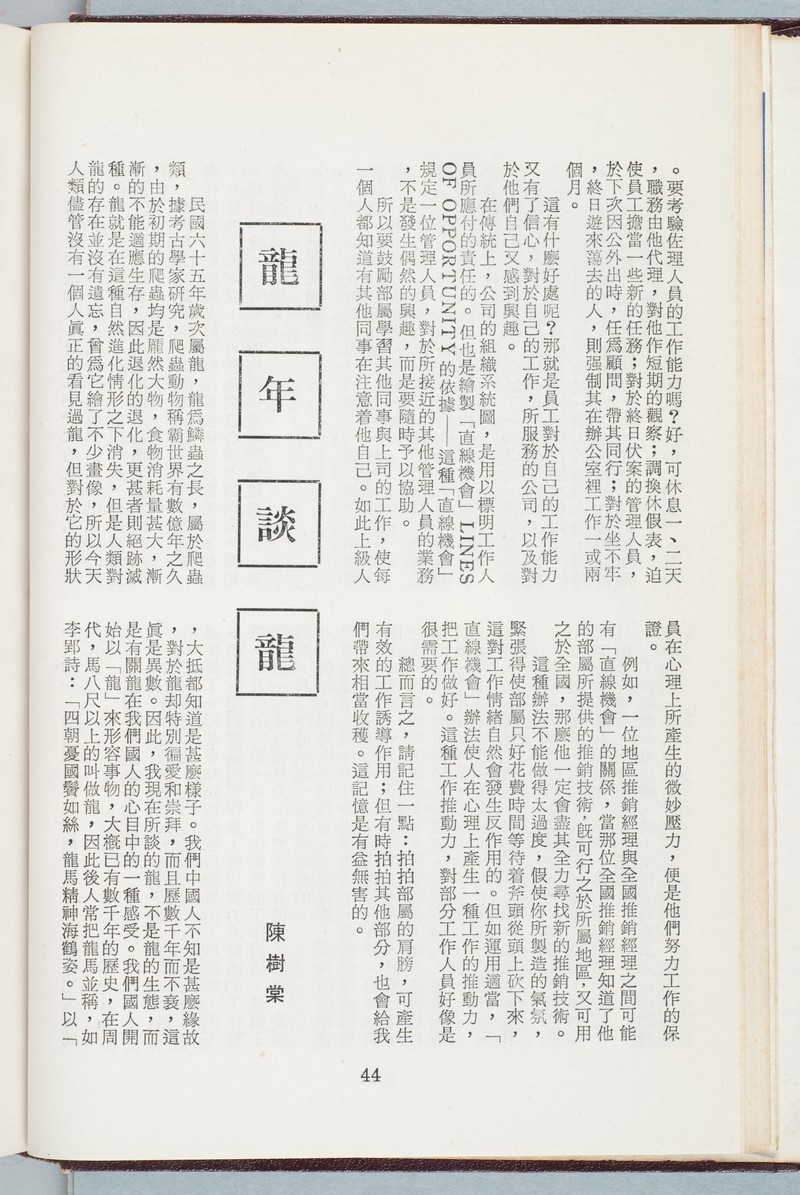 。要考驗佐理人員的工作能力嗎？好，可休息一、二天
，職務由他代理，對他作短期的觀察；調換休假表，迫
使員工擔當一些新的任務；對於終日伏案的管理人員，
於下次因公外出時，任爲顧問，帶其同行；對於坐不牢
，終日遊來蕩去的人，則强制其在辦公室裡工作一或兩
個月。
這有什麽好處呢？那就是員工對於自己的工作能力
又有了信心，對於自己的工作，所服務的公司，以及對
於他們自己又感到興趣。
在傳統上，公司的組織系統圖，是用以標明工作人
員所應付的責任的。但也是繪製「直線機會」LINES
OF OPPORTUNITY的依據——這種「直線機會」
規定一位管理人員，對於所接近的其他管理人員的業務
，不是發生偶然的興趣，而是要隨時予以協助。
所以要鼓勵部屬學習其他同事與上司的工作，使每
一個人都知道有其他同事在注意着他自己。如此上級人
員在心理上所產生的微妙壓力，便是他們努力工作的保
證。
例如，一位地區推銷經理與全國推銷經理之間可能
有「直線機會」的關係，當那位全國推銷經理知道了他
的部屬所提供的推銷技術，旣可行之於所屬地區，又可用
之於全國，那麽他一定會盡其全力尋找新的推銷技術。
這種辦法不能做得太過度，假使你所製造的氣氛，
緊張得使部屬只好花費時間等待着斧頭從頭上砍下來，
這對工作情緒自然會發生反作用的。但如運用適當，「
直線機會」辦法使人在心理上產生一種工作的推動力，
把工作做好。這種工作推動力，對部分工作人員好像是
很需要的。
總而言之，請記住一點：拍拍部屬的肩膀，可產生
有效的工作誘導作用；但有時拍拍其他部分，也會給我
們帶來相當收穫。這記憶是有益無害的。
龍年談龍
陳樹棠
民國六十五年歲次屬龍，龍爲鱗蟲之長，屬於爬蟲
類，據考古學家研究，爬蟲動物稱霸世界有數億年之久
，由於初期的爬蟲均是龐然大物，食物消耗量甚大，漸
漸的不能適應生存，因此退化的退化，更甚者則絕跡滅
種。龍就是在這種自然進化情形之下消失，但是人類對
龍的存在並沒有遺忘，曾爲它繪了不少畫像，所以今天
人類儘管沒有一個人眞正的看見過龍，但對於它的形狀
，大抵都知道是甚麽樣子。我們中國人不知是甚麽緣故
，對於龍却特別徧愛和崇拜，而且歷數千年而不衰，這
眞是異數。因此，我現在所談的龍，不是龍的生態，而
是有關龍在我們國人的心目中的一種感受。我們國人開
始以「龍」來形容事物，大概已有數千年的歷史，在周
代，馬八尺以上的叫做龍，因此後人常把龍馬並稱，如
李郢詩：「四朝憂國鬢如絲，龍馬精神海鶴姿。」以「
44